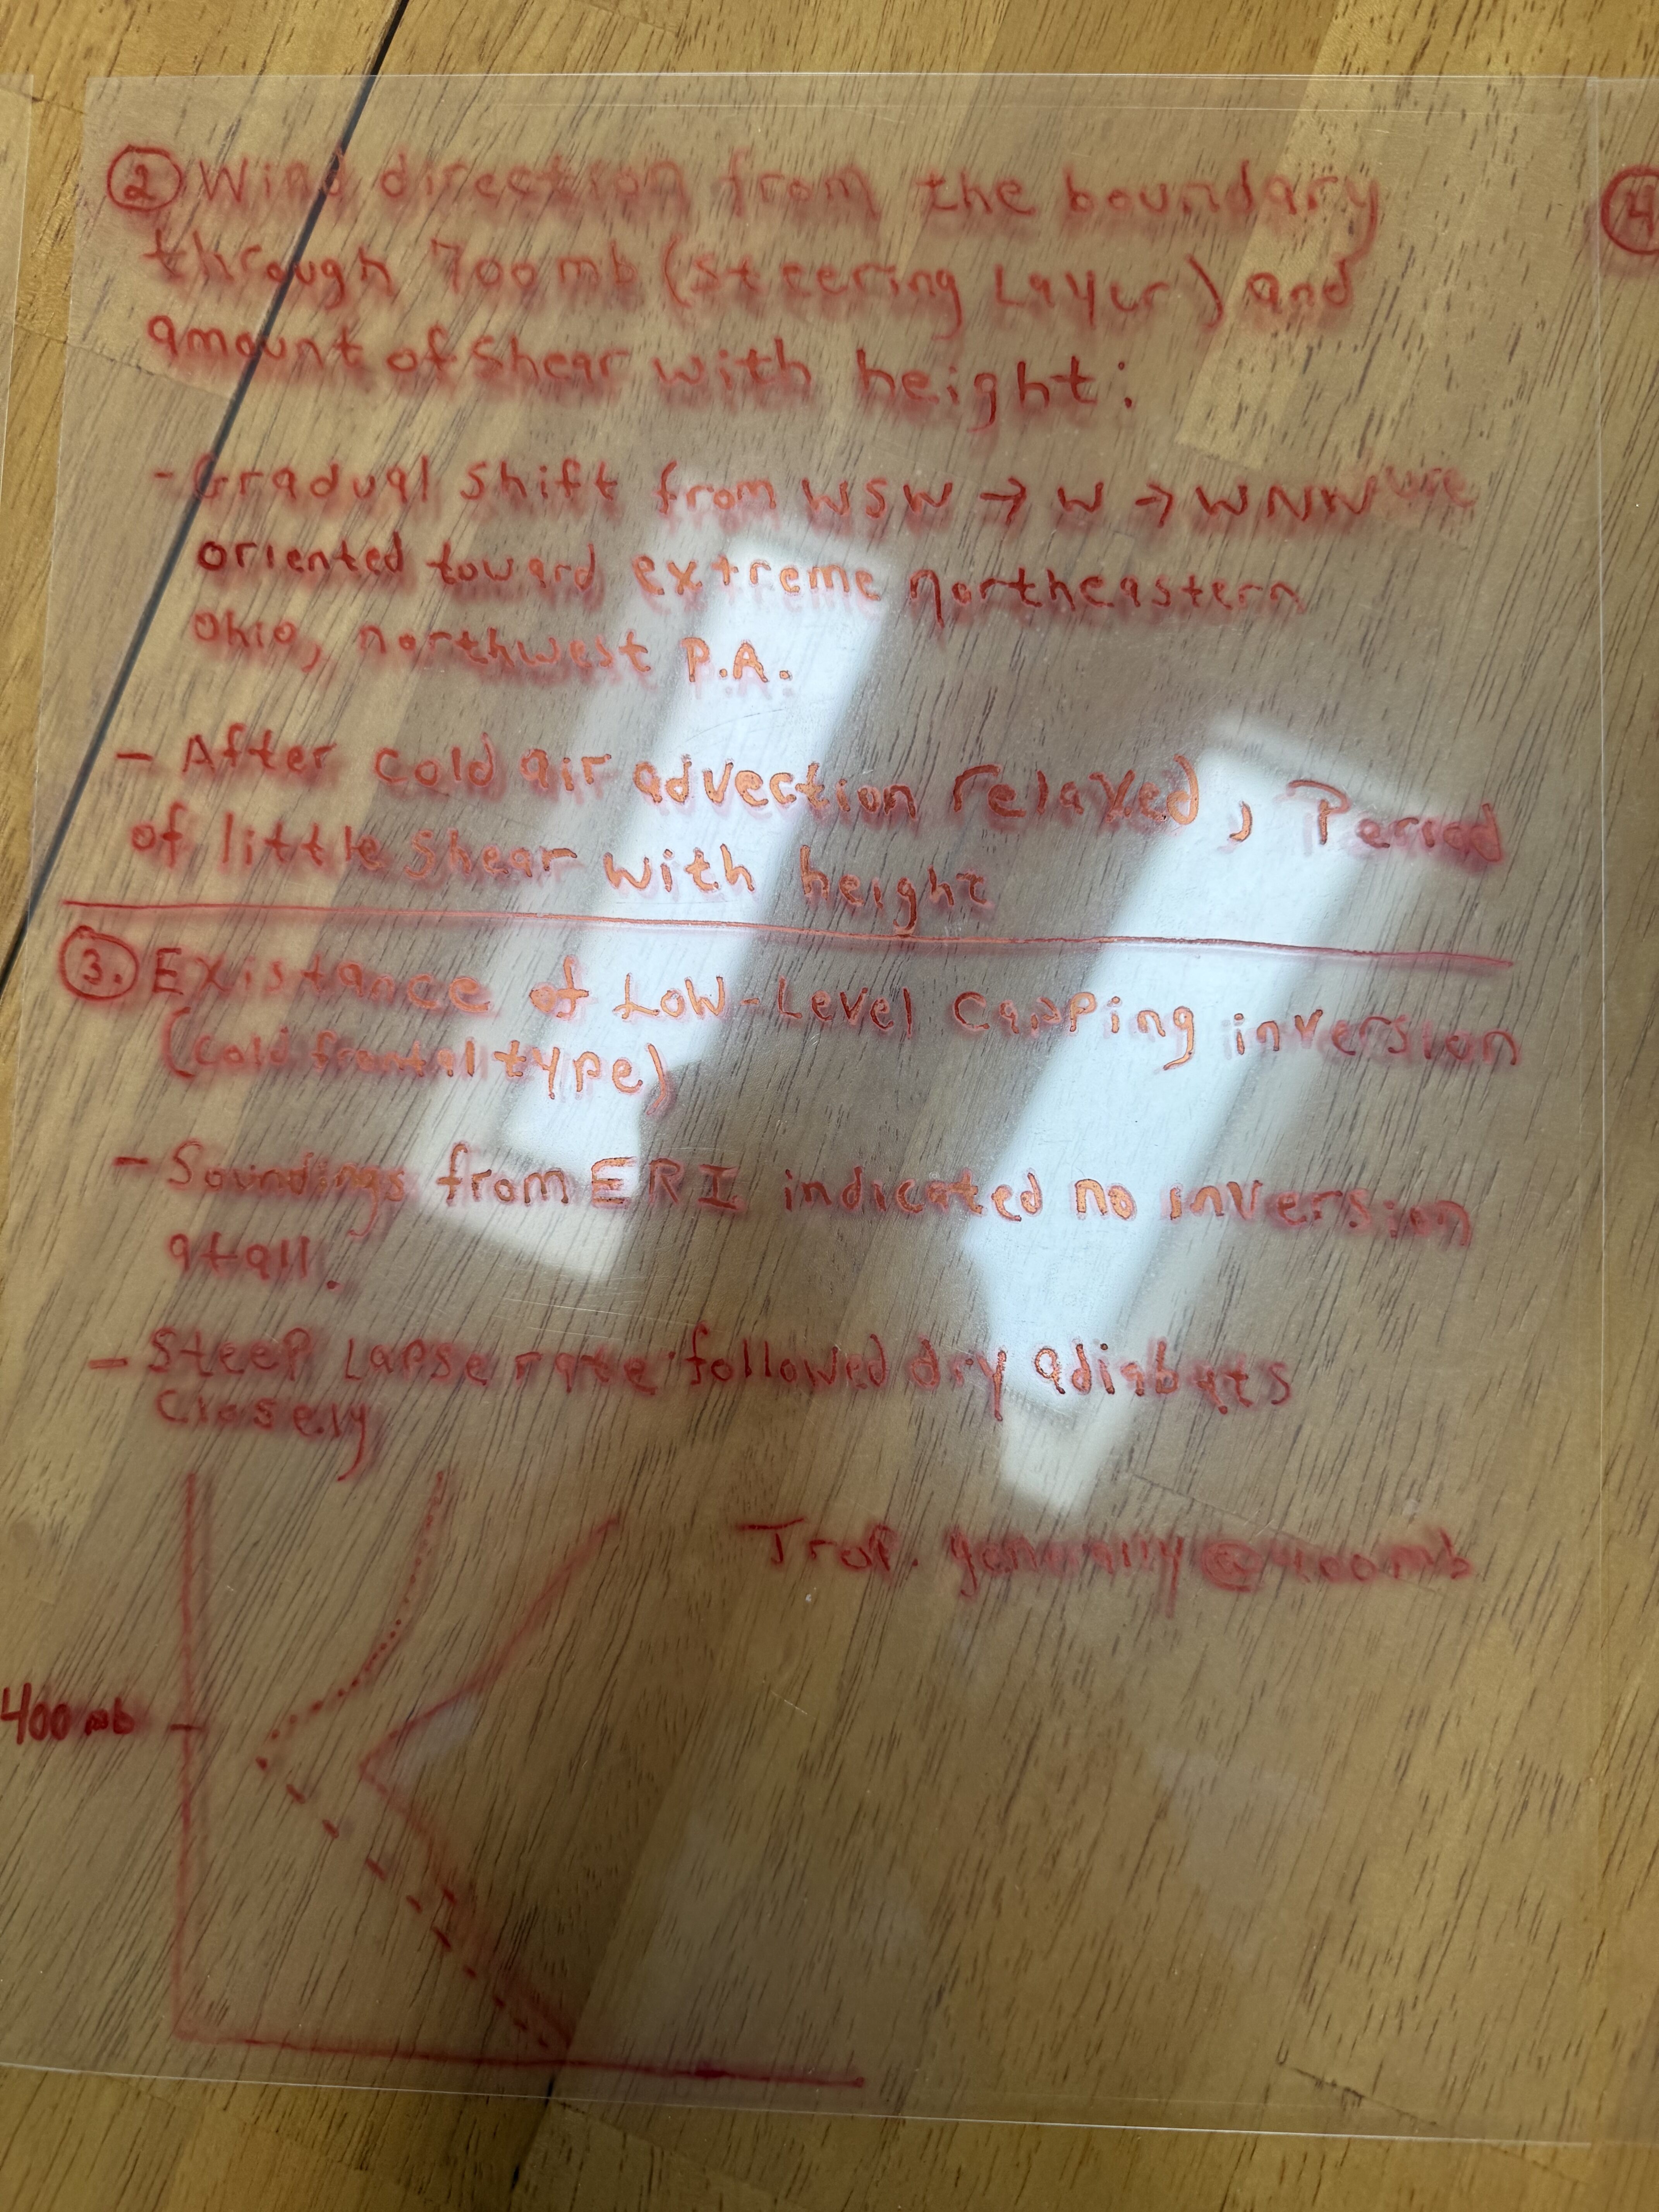 ② Wind direction from the boundary
through 700mb (steering Layer) and
amount of shear with height:
- Gradual shift from WSW → W → WNW
oriented toward extreme northeastern
Ohio, northwest P.A.
- After cold air advection relaxed, Period
of little shear with height
③. Existance of Low-Level Capping inversion
(cold frontal type)
- Soundings from ERI indicated no inversion
at all.
- Steep Lapse rate followed dry adiabats
Closely
Trop. generally @ 400mb
400mb
④